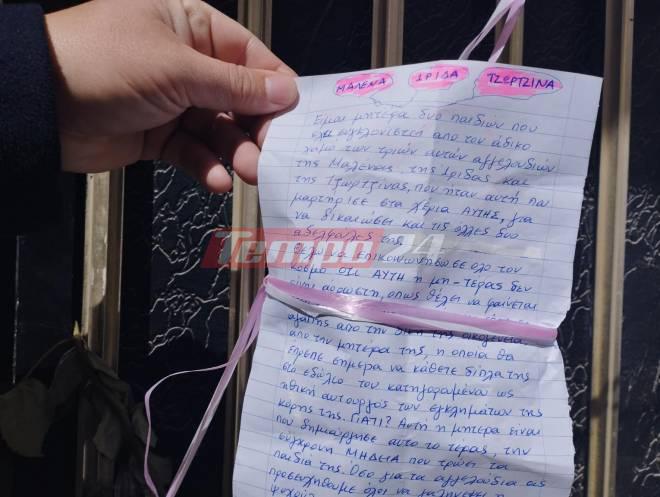 ΜΑΛΕΝΑ ΙΡΙΔΑ ΤΖΩΡΤΖΙΝΑ
Είμαι μητέρα δυο παιδιών που
έχει συγκλονιστεί απο τον άδικο
χαμό των τριών αυτών αγγελουδιών
της Μαλενας, της Ιριδας και
της Τζωρτζινας, που ήταν αυτή που
μαρτήρισε στα χέρια ΑΥΤΗΣ, για
να δικαιώσει και τις άλλες δυο
αδελφούλες της.
Θέλω να επικοινωνήσω σε όλο τον
κόσμο οτι ΑΥΤΗ η μη-τέρας δεν
είναι αρρωστη, οπως θέλει να φαίνεται
Tempo24
αγάπης απο την δική της οικογένεια
απο την μητέρα της, η οποία θα
έπρεπε σήμερα να κάθετε δίπλα της
στο εδώλιο του κατηγορουμένου ως
ηθική αυτουργός των εγκλημάτων της
κόρης της. ΓΙΑΤΙ? Αυτή η μητέρα είναι
που δημιούργησε αυτο το τέρας, την
σύγχρονη ΜΗΔΕΙΑ που τρώει τα
παιδιά της. Όσο για τα αγγελούδια ας
προσευχηθουμε όλοι να γαληνέψει η